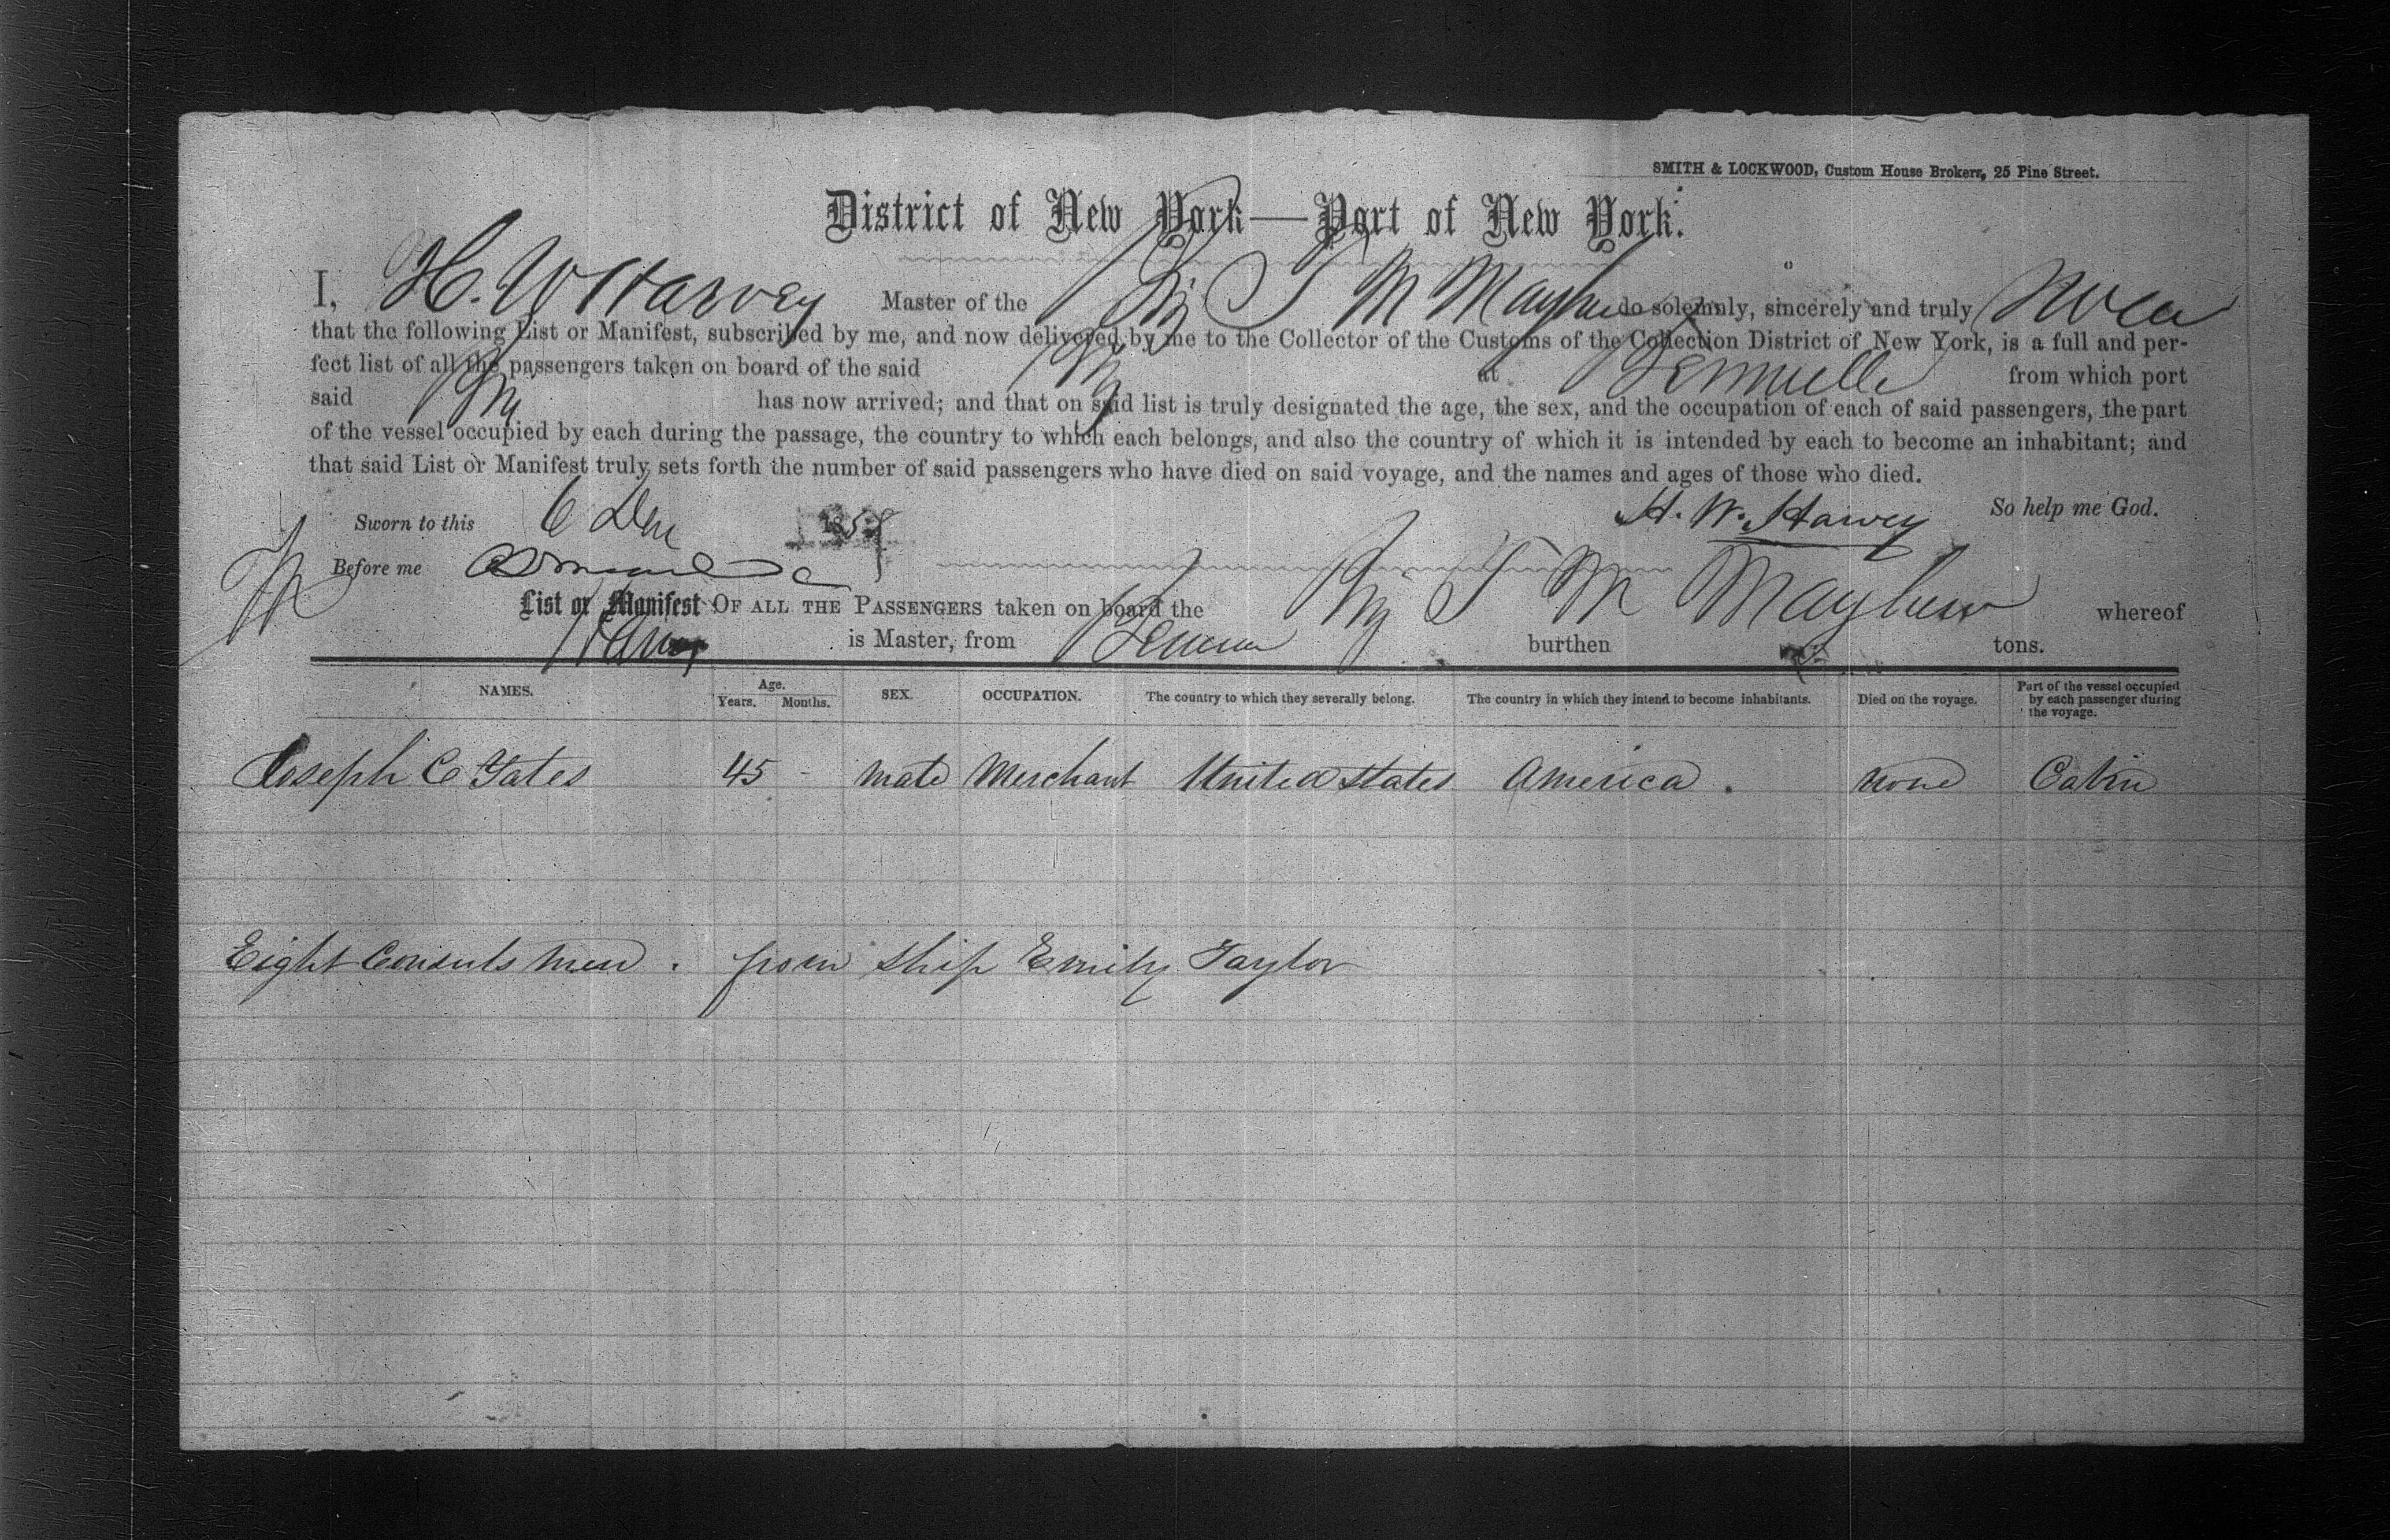 SMITH & LOCKWOOD, Custom House Brokers, 25 Pine Street.
District of New York—Port of New York.
I, H. W Harvey Master of the Brig T M Mayhew do solemnly, sincerely and truly swear
that the following List or Manifest, subscribed by me, and now delivered by me to the Collector of the Customs of the Collection District of New York, is a full and per-
fect list of all the passengers taken on board of the said Brig at from which port
said Brig has now arrived; and that on said list is truly designated the age, the sex, and the occupation of each of said passengers, the part
of the vessel occupied by each during the passage, the country to which each belongs, and also the country of which it is intended by each to become an inhabitant; and
that said List or Manifest truly sets forth the number of said passengers who have died on said voyage, and the names and ages of those who died.
Sworn to this 6 Dec 185 H. W. Harvey So help me God.
Before me
List or Manifest OF ALL THE PASSENGERS taken on board the Brig T M Mayhew whereof
Harvey is Master, from burthen tons.
NAMES. Age. Years. Months. SEX. OCCUPATION. The country to which they severally belong. The country in which they intend to become inhabitants. Died on the voyage. Part of the vessel occupied by each passenger during the voyage.
Joseph C Yates 45 - male Merchant United States America . none Cabin
Eight Consuls Men . from Ship Emily Taylor